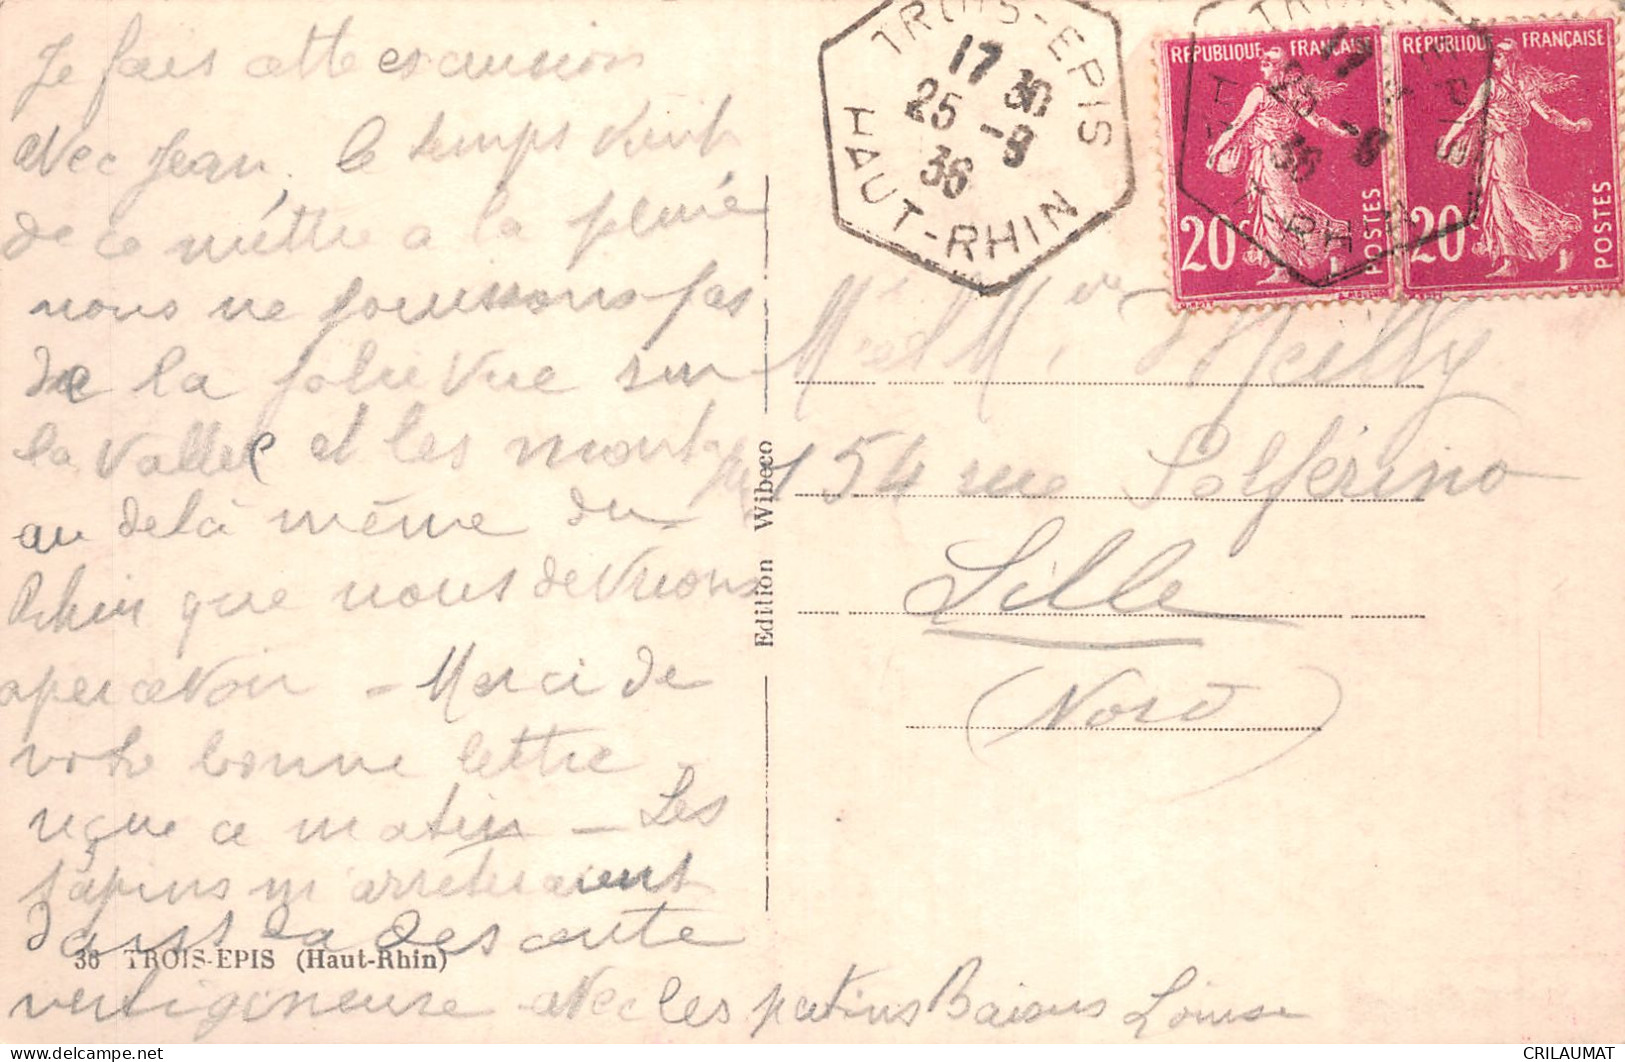 Je fais cette excursion
avec Jean. le temps vient
de ce mettre a la pluie
nous ne jouissons pas
de la jolie vue sur
la vallée et les monts
au delà même du
Rhin que nous devrions
apercevoir - Merci de
votre bonne lettre
reçue ce matin - Les
sapins m'arrêteraient
dans la descente
vertigineuse avec les patins Baisers Louise
36 TROIS-EPIS (Haut-Rhin)
Edition Wibeco
TROIS-EPIS
17 30
25 -8
36
HAUT-RHIN
REPUBLIQUE FRANÇAISE
20c
POSTES
REPUBLIQUE FRANÇAISE
20c
POSTES
TROIS-EPIS
17
25 -8
36
HAUT-RHIN
Mr et Mme
154 rue Solférino
Lille
(Nord)
CRILAUMAT